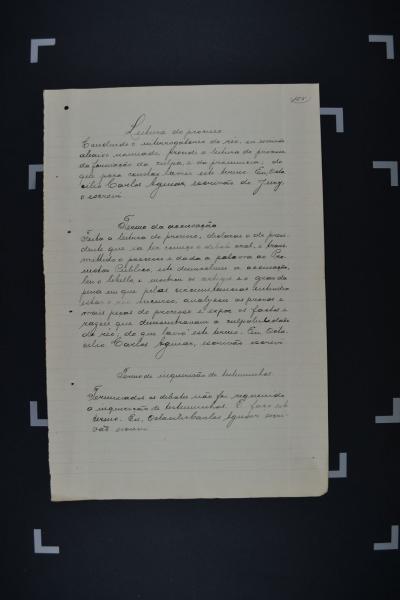 Leitura do processo
Concluido o interrogatorio do réo, eu escrivão
abaixo nomeado, procedi a leitura do processo
da formação da culpa, e da pronuncia; do
que para constar lavrei este termo. Eu, Octa-
cilio Carlos Aguiar, escrivão do Jury,
o escrevi
Termo da accusação
Feita a leitura do processo, declarou o dr presi-
dente que ia ter começo o debate oral, e trans-
mettido o processo e dada a palavra ao Pro-
motor Publico, este desenvolveu a accusação,
leu o libello e mostrou os artigos e o grau da
pena em que pelas circumstancias entendia
estar o réo incurso, analysou as provas e
mais peças do processo e expoz os factos e
razões que demonstravam a culpabilidade
do réo; do que lavro este termo. Eu Octa-
cilio Carlos Aguiar, escrivão escrevi
Termo de inquirição de testemunhas
Terminados os debates não foi requerida
a inquirição de testemunhas. E faço este
termo. Eu, Octacilio Carlos Aguiar escri-
vão escrevi